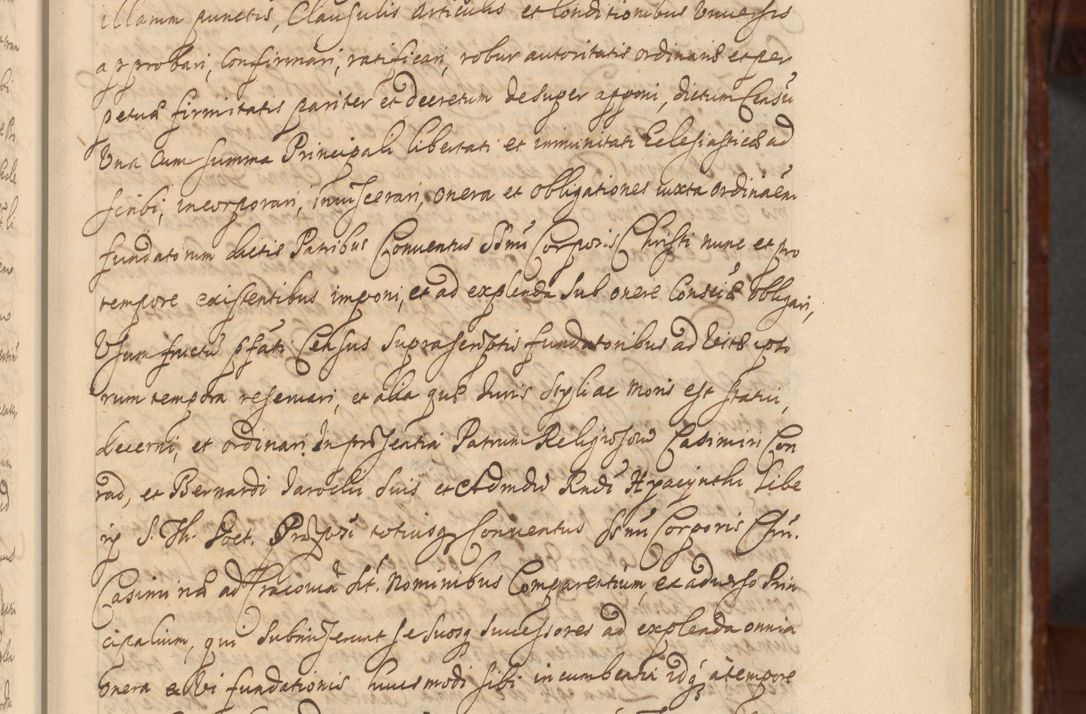 illarum punctis, Clausulis Articulis et Conditionibus Universis
approbari, Confirmari, ratificari, robur autoritatis ordinariæ et per
petuæ firmitatis pariter et decretum desuper apponi, dictum Censũ
Una Cum summa Principali libertati et immunitati Ecclesiasticæ ad
scribi, incorporari, inviscerari, onera et obligationes iuxta ordinãem
fundatorum dictis Patribus Conventus SSmi Corporis Christi nunc et pro
tempore existentibus imponi, et ad explenda sub onere Consciæ obligari,
Usum fructũ pfati Census suprascriptis fundatoribus ad vitæ ipso
rum tempora reservari, et alia quæ Iuris Styli ac Moris est statui,
decerni, et ordinari. In præsentia Patrum Religiosorũ Casimiri Con
rad, et Bernardi Jarochi suis et Admdũ Rndi Hyacynthi Libe
S. Th. Doct. totiusq Conventus SSmi Corporis Chri.
Casimiriæ ad Cracoviã sit. Nominibus Comparentium, et adverso Prin
cipalium, qui Submiserunt se suosq Successores ad explenda omnia
onera vi fundationis huiusmodi sibi incumbentia idq̃ à tempore